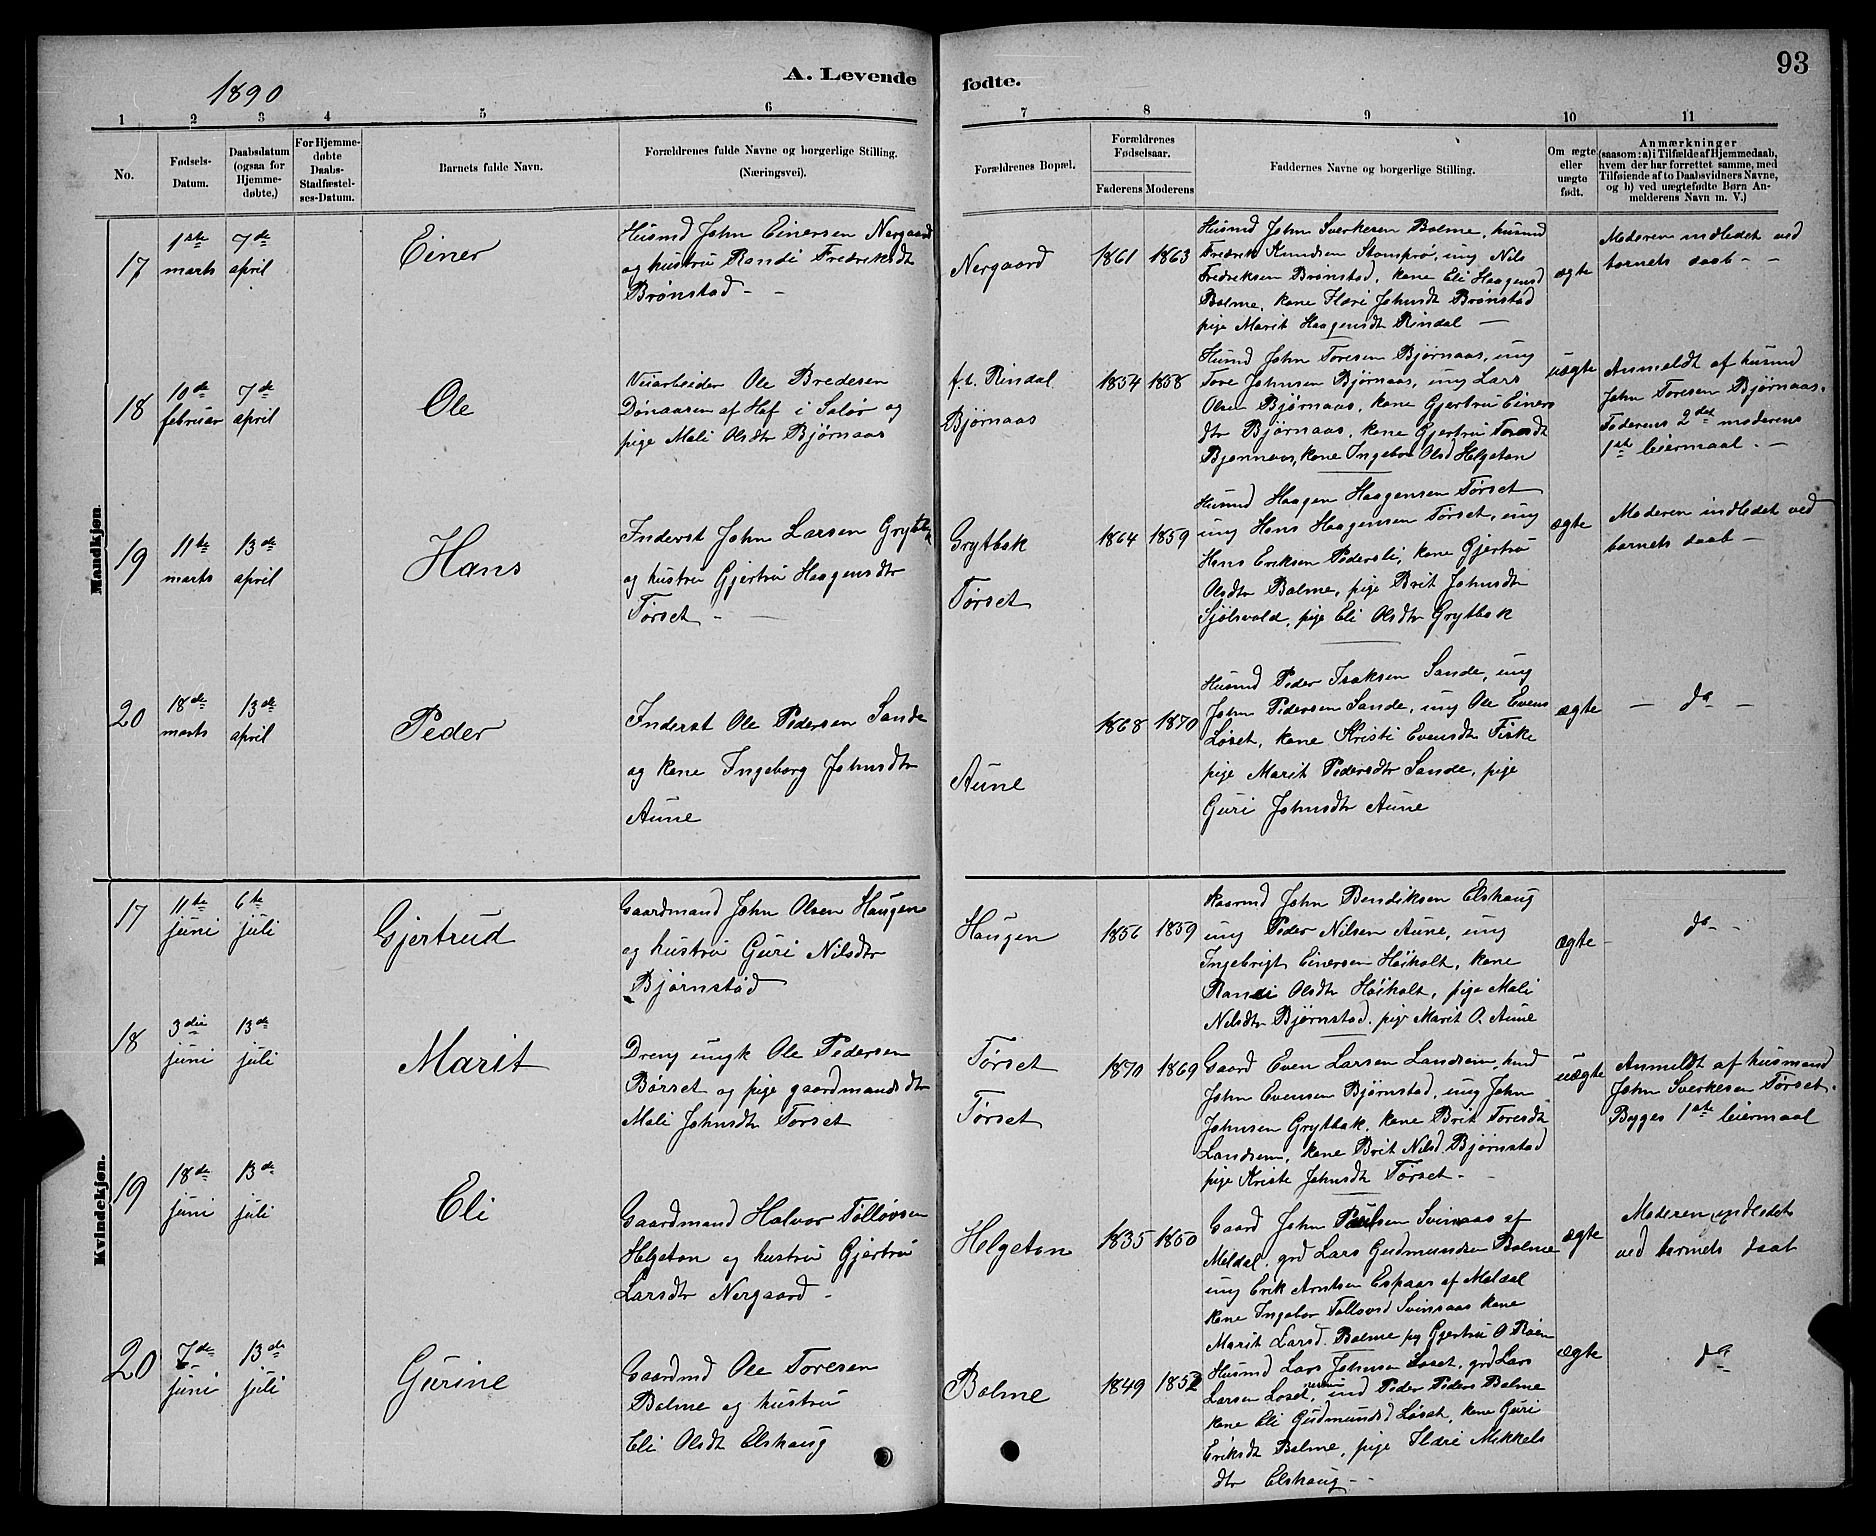 93
1890
A. Levende fødte.
1 2 3 4 5 6 7 8 9 10 11
No.
Fødsels-
Datum.
Daabsdatum
(ogsaa for
Hjemme-
døbte,)
For Hjemme-
døbte
Daabs-
Stadfæstel-
ses-Datum.
Barnets fulde Navn.
Forældrenes fulde Navne og borgerlige Stilling.
(Næringsvei).
Forældrenes Bopæl.
Forældrenes
Fødselsaar.
Faderens Moderens
Faddernes Navne og borgerlige Stilling.
Om ægte
eller
uægte
født.
Anmærkninger
(saasom: a) i Tilfælde af Hjemmedaab,
hvem der har forrettet samme, med
Tilføiende af to Daabsvidners Navne,
og b) ved uægtefødte Børn An-
melderens Navn m. V.)
Mandkjøn.
17
1ste
marts
7de
april
Einer
Husmd John Einersen Nergaard
og hustru Randi Fredriksdt
Brønstad
Nergaard
1861 1863
Husmd John Sverkesen Bolme, husmd
Fredrik Knudsen Stomprø, ung Nils
Fredriksen Brønstad, kone Eli Haagensd
Bolme, kone Ildri Johnsdt Brønstad
pige Marit Haagensdt Rindal
ægte
Moderen indledet ved
barnets daab
18
10de
februar
7de
april
Ole
Veiarbeider Ole Bredesen
Dønaasen af Hof i Solør og
pige Mali Olsdtr Bjørnaas
f.t. Rindal
Bjørnaas
1854 1858
Husmd John Toresen Bjørnaas, ung
Tore Johnsen Bjørnaas, ung Lars
Olsen Bjørnaas, kone Gjertru Einers
dtr Bjørnaas, kone Gjertru Toresdt
Bjørnaas, kone Ingebor Olsd Helgeton
uægte
Anmeldt af husmd
John Toresen Bjørnaas.
Faderens 2det moderens
1ste leiermaal
19
11te
marts
13de
april
Hans
Inderst John Larsen Grytbak
og hustru Gjertru Haagensdtr
Tørset
Grytbak
Tørset
1864 1859
Husmd Haagen Haagensen Tørset
ung Hans Haagensen Tørset, ung
Hans Eriksen Pedersli, kone Gjertru
Olsdtr Bolme, pige Brit Johnsdtr
Sjølsvold, pige Eli Olsdtr Grytbak
ægte
Moderen indledet ved
barnets daab
20
18de
marts
13de
april
Peder
Inderst Ole Pedersen Sande
og kone Ingeborg Johnsdtr
Aune
Aune
1868 1870
Husmd Peder Isaksen Sande, ung
John Pedersen Sande, ung Ole Evens
Løset, kone Kristi Evensdtr Fiske
pige Marit Pedersdtr Sande, pige
Guri Johnsdtr Aune
ægte
do
Kvindekjøn.
17
11te
juni
6te
juli
Gjertrud
Gaardmand John Olsen Haugen
og hustru Guri Nilsdtr
Bjørnstad
Haugen
1856 1859
Kaarmd John Bendiksen Elshaug
ung Peder Nilsen Aune, ung
Ingebrigt Einersen Høiholt, kone
Randi Olsdtr Høiholt, pige Mali
Nilsdtr Bjørnstad, pige Marit O. Aune
ægte
do
18
3die
juni
13de
juli
Marit
Dreng ungk Ole Pedersen
Børset og pige gaardmandsdtr
Mali Johnsdtr Tørset
Tørset
Tørset
1870 1869
Gaard Even Larsen Landsem, ind
John Evensen Bjørnstad, ung John
Johnsen Grytbak, kone Brit Toresdt
Landsem, kone Brit Nilsd. Bjørnstad
pige Kristi Johnsdt Tørset
uægte
Anmeldt af husmand
John Sverkesen Tørset.
Begges 1ste leiermaal
19
18de
juni
13de
juli
Eli
Gaardmand Halvor Tølløvsen
Helgeton og hustru Gjertru
Larsdtr Nergaard
Helgeton
1835 1850
Gaard John Paulsen Svinsaas af
Meldal, grd Lars Gudmundsen Bolme
ung Erik Arntsen Espaas af Meldal
kone Ingebor Tølløvsd Svinsaas kone
Marit Larsd. Bolme pg Gjertru O Røen
ægte
Moderen indledet
ved barnets daab
20
7de
juni
13de
juli
Gurine
Gaardmd Ole Toresen
Bolme og hustru
Eli Olsdt Elshaug
Bolme
1849 1852
Husmd Lars Johnsen Løset, grd Lars
Larsen Løset, ind Peder Peders Bolme
kone Eli Gudmundsd Løset, kone Guri
Eriksdt Bolme, pige Ildri Mikkels
dtr Elshaug
ægte
do